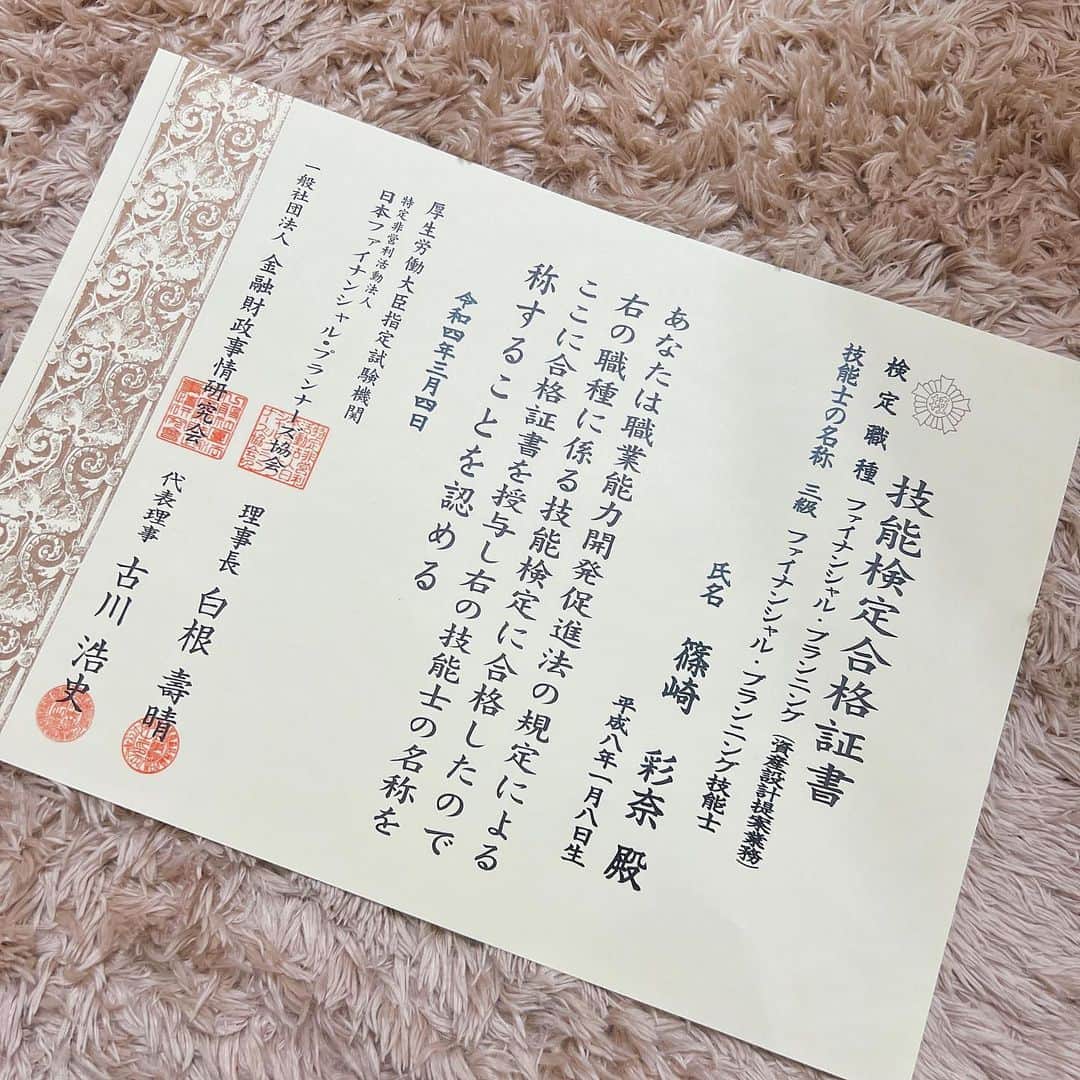 技能検定合格証書
検定職種 ファイナンシャル・プランニング (資産設計提案業務)
技能士の名称 三級 ファイナンシャル・プランニング技能士
氏名 篠崎 彩奈 殿
平成八年一月八日生
あなたは職業能力開発促進法の規定による
右の職種に係る技能検定に合格したので
ここに合格証書を授与し右の技能士の名称を
称することを認める
令和四年三月四日
厚生労働大臣指定試験機関
特定非営利活動法人
日本ファイナンシャル・プランナーズ協会
理事長 白根 壽晴
一般社団法人 金融財政事情研究会
代表理事 古川 浩史